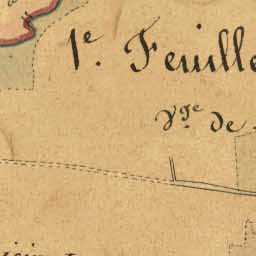 1e. Feuille
Vge de